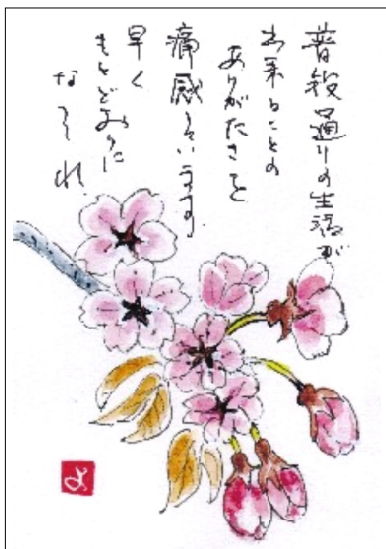 普段通りの生活が
出来ることの
ありがたさを
痛感しています。
早く
もとどおりに
なーれ!
よ